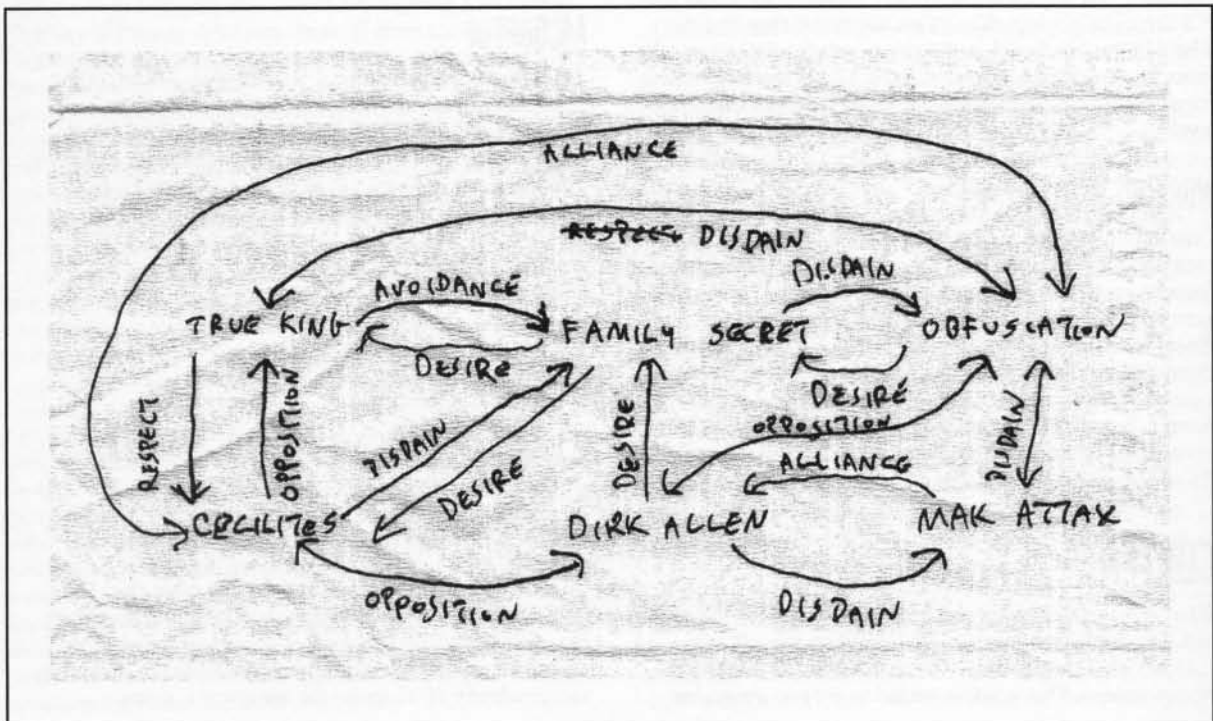 ALLIANCE
RESPECT DISDAIN
DISDAIN
AVOIDANCE
TRUE KING
FAMILY SECRET
OBFUSCATION
DESIRE
DESIRE
RESPECT
OPPOSITION
DISDAIN
DESIRE
DESIRE
OPPOSITION
ALLIANCE
DISDAIN
CECILITES
DIRK ALLEN
MAK ATTAX
OPPOSITION
DISDAIN